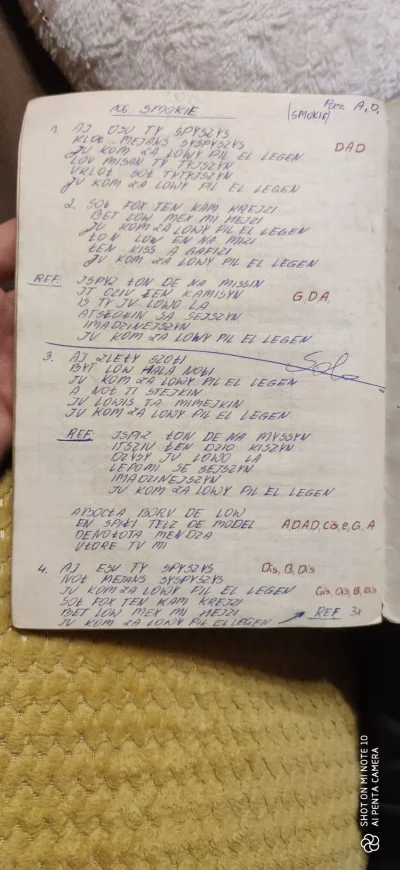 106 SMOKIE
Poez. A, D,
(SMOKIE
1. AJ OSU TY SPYSZYS
KLOŁ MEJANS SYSPYSZYS
DAD
JU KOM ZA LOWY PIL EL LEGEN
LOV MISAN TY TYJSZYN
VKLOŁ SOŁ TYTYJSZYN
JU KOM ZA LOWY PIL EL LEGEN
2. SOŁ FOX TEN KAM KREJZI
BET LOW MEX MI HEJZI
JU KOM ZA LOWY PIL EL LEGEN
ŁON LOW EN NA MIZI
ŁEN KISS A GAFIZI
JU KOM ZA LOWY PIL EL LEGEN
REF. ISPYZ ŁON DE NA MISSIN
IT CZIU ŁEN KAMISYN
G, D, A,
IS TY JU LOWO LA
ATSŁOŁIN SA SEJSZYN
IMADZINEJSZYN
JU KOM ZA LOWY PIL EL LEGEN
3. AJ ZLETY SZOŁI
Solo
BYT LOW HALA NOŁI
JU KOM ZA LOWY PIL EL LEGEN
A NOŁ TI STEJKIN
JU LOWIS TA MIMEJKIN
JU KOM ZA LOWY PIL EL LEGEN
REF. ISPIZ ŁON DE NA MYSSYN
ITSZIU ŁEN DZIO KISZYN
DZYSY JU LOWO LA
LEPOMI SE SEJSZYN
IMADZINEJSZYN
JU KOM ZA LOWY PIL EL LEGEN
ABOCŁA BORV DE LOW
EN SPIŁI TELZ DE MODEL
A, D, A, D, Cis, e, G, A
DENOŁOTA MENDZA
VŁORE TV MI
4. AJ ESU TY SPYSZYS
Dis, B, Dis
NOŁ MEJANS SYSPYSZYS
JU KOM ZA LOWY PIL EL LEGEN
Gis, Dis, B, Dis
SOŁ FOX TEN KAM KREJZI
BET LOW MEX MI HEJZI
REF 3x
JU KOM ZA LOWY PIL EL LEGEN
SHOT ON MI NOTE 10
AI PENTA CAMERA